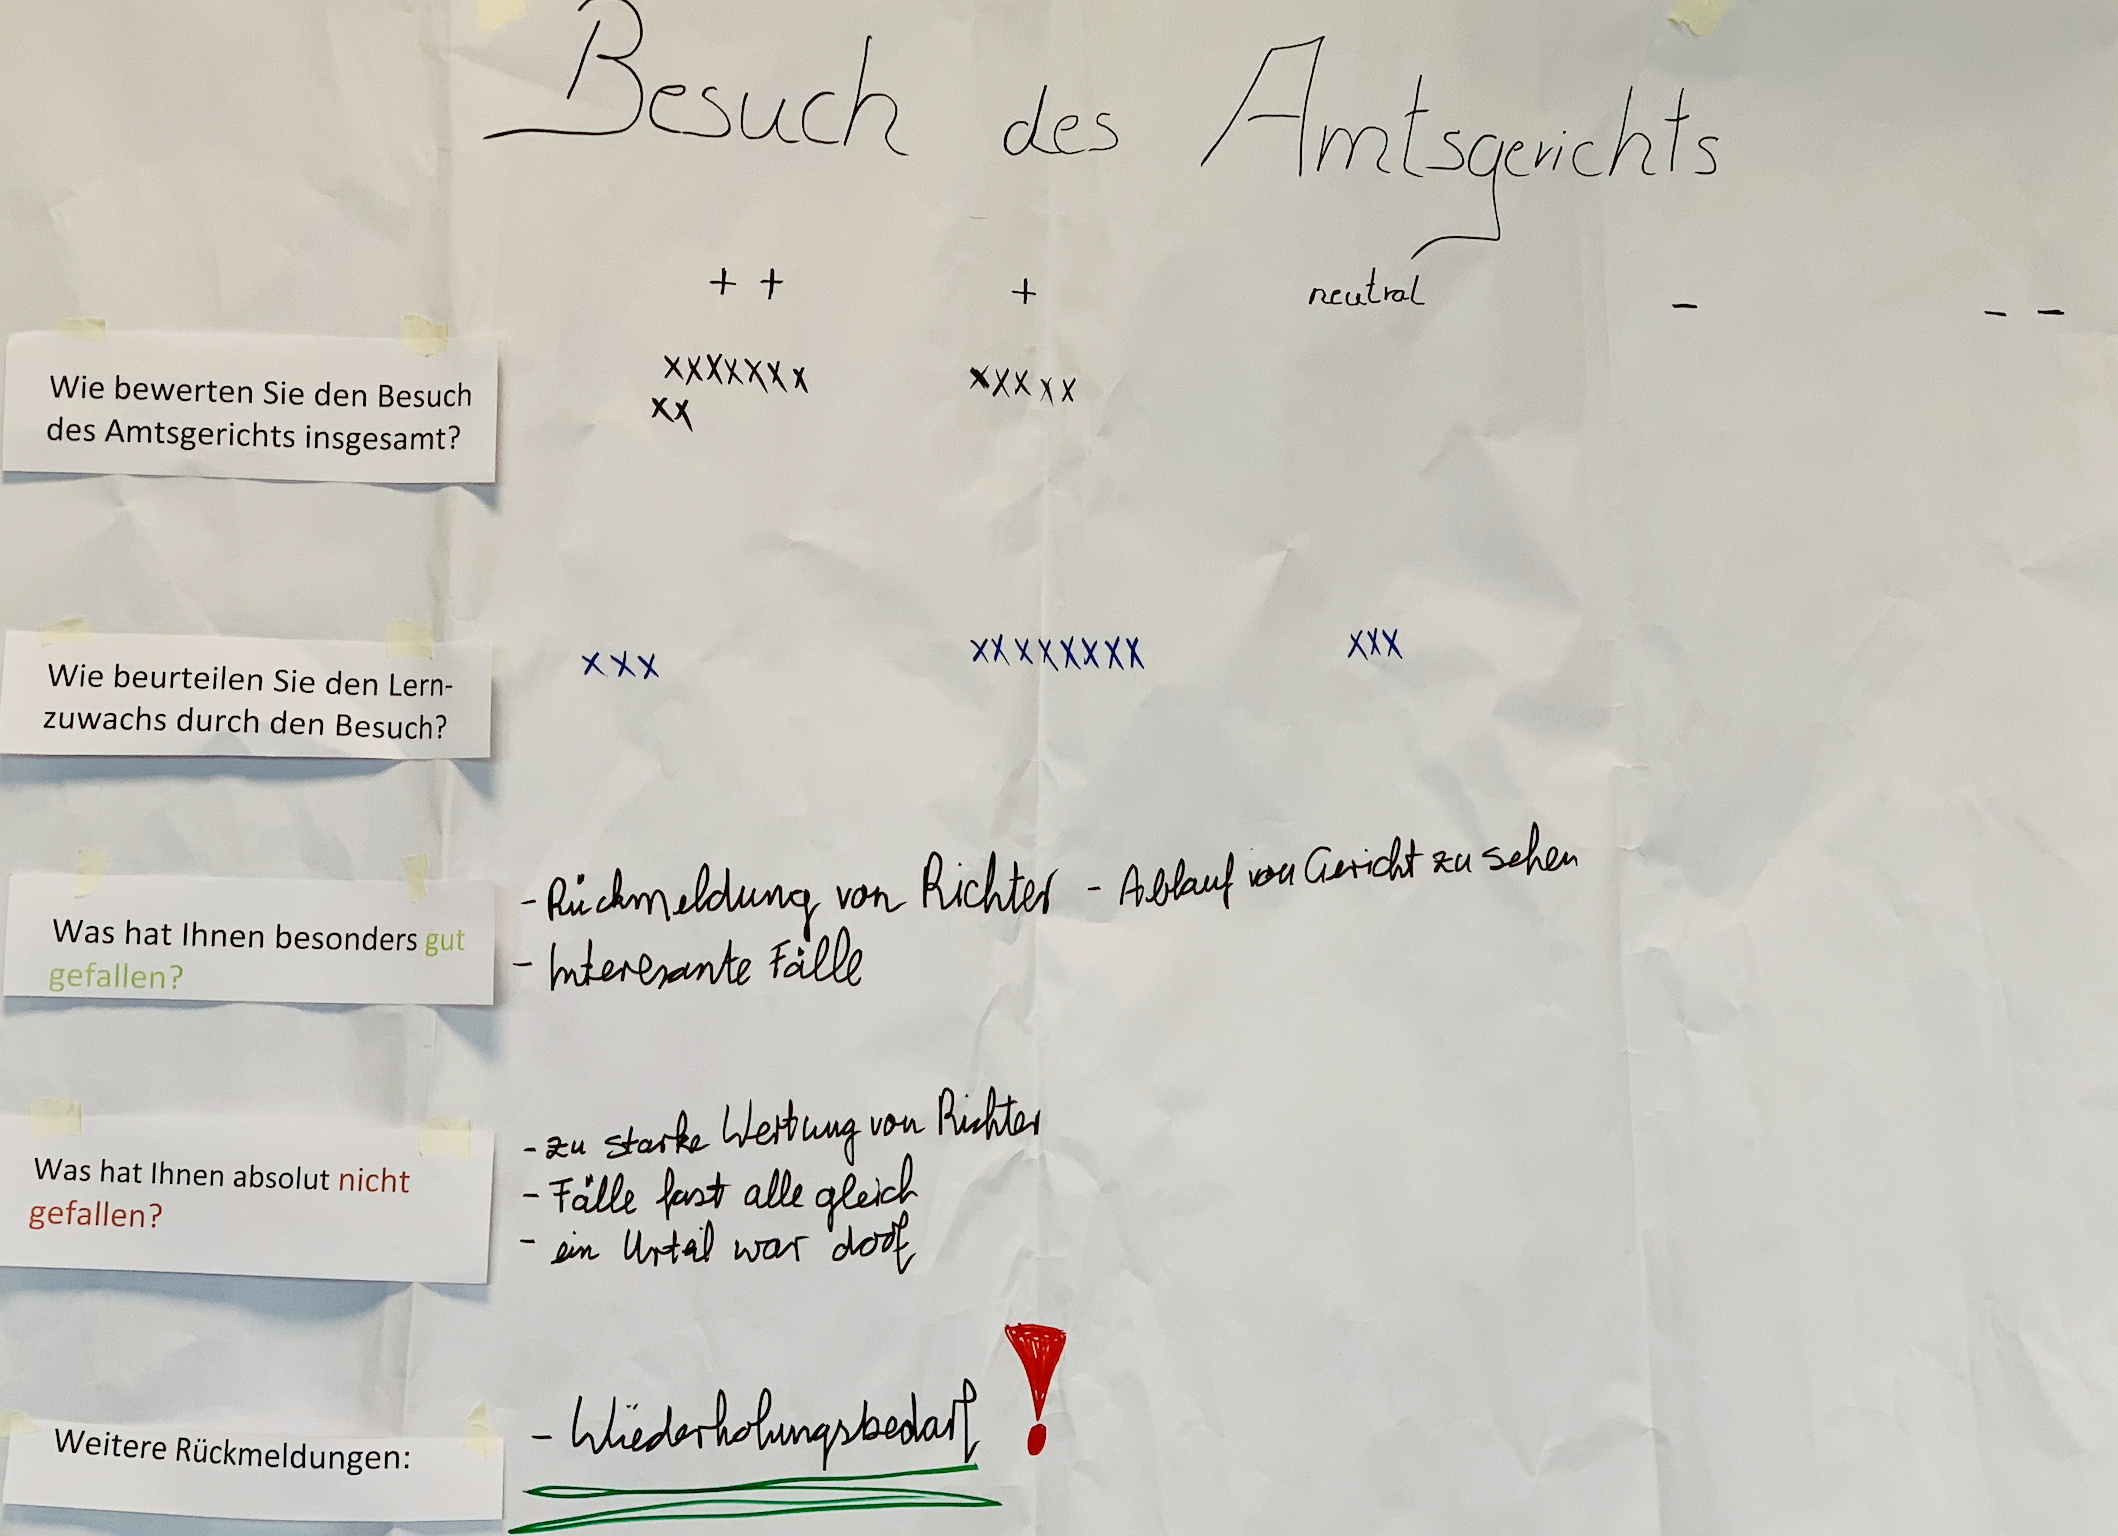 Besuch des Amtsgerichts
+ + + neutral - - -
Wie bewerten Sie den Besuch
des Amtsgerichts insgesamt?
xxxxxxx xxxxx
xx
Wie beurteilen Sie den Lern-
zuwachs durch den Besuch?
xxx xxxxxxxx xxx
Was hat Ihnen besonders gut
gefallen?
- Rückmeldung von Richter - Ablauf von Gericht zu sehen
- Interesante Fälle
Was hat Ihnen absolut nicht
gefallen?
- zu starke Wertung von Richter
- Fälle fast alle gleich
- ein Urteil war doof
Weitere Rückmeldungen:
- Wiederholungsbedarf !